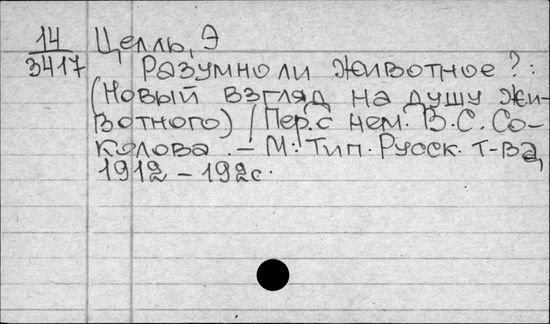 14
3417
Целль, Э
Разумно ли животное?:
(Новый взгляд на душу жи-
вотного) / Пер. с нем. В. С. Со-
колова. – М: Тип. Русск. т-ва,
1912 – 192с.